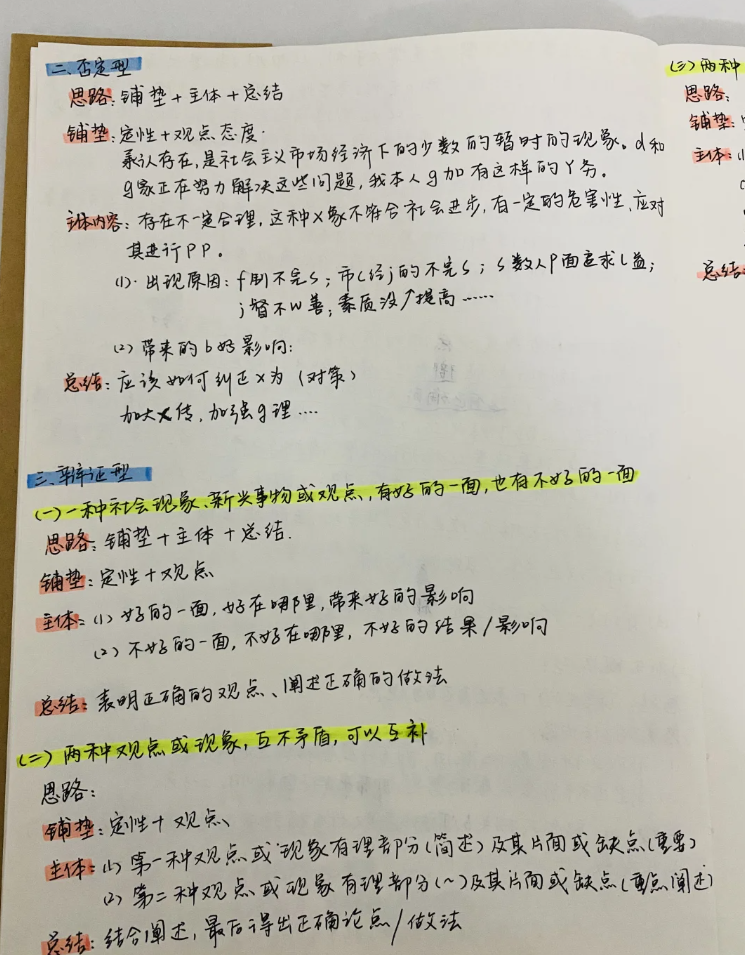 二、否定型
思路：铺垫+主体+总结
铺垫：定性+观点态度.
承认存在，是社会主义市场经济下的少数的暂时的现象。d和
g家正在努力解决这些问题，我本人g加有这样的Y务。
主体内容：存在不一定合理，这种X象不符合社会进步，有一定的危害性、应对
其进行PP。
(1)·出现原因：f制不完S；市C经j的不完S；S数人P面追求L益；
j督不W善；素质没个提高……
(2) 带来的b好影响：
总结：应该如何纠正X为（对策）
加大X传，加强g理....
三、辩证型
(一) 一种社会现象、新兴事物或观点，有好的一面，也有不好的一面
思路：铺垫+主体+总结.
铺垫：定性+观点
主体：(1) 好的一面，好在哪里，带来好的影响
(2) 不好的一面，不好在哪里，不好的结果/影响
总结：表明正确的观点、阐述正确的做法
(二) 两种观点或现象，互不矛盾，可以互补
思路：
铺垫：定性+观点
主体：(1) 第一种观点或现象有理部分(简述)及其片面或缺点(重要)
(2) 第二种观点或现象有理部分(~)及其片面或缺点(重点阐述)
总结：结合阐述，最后得出正确论点/做法
(三) 两种
思路：
铺垫：
主体：(1
总结：